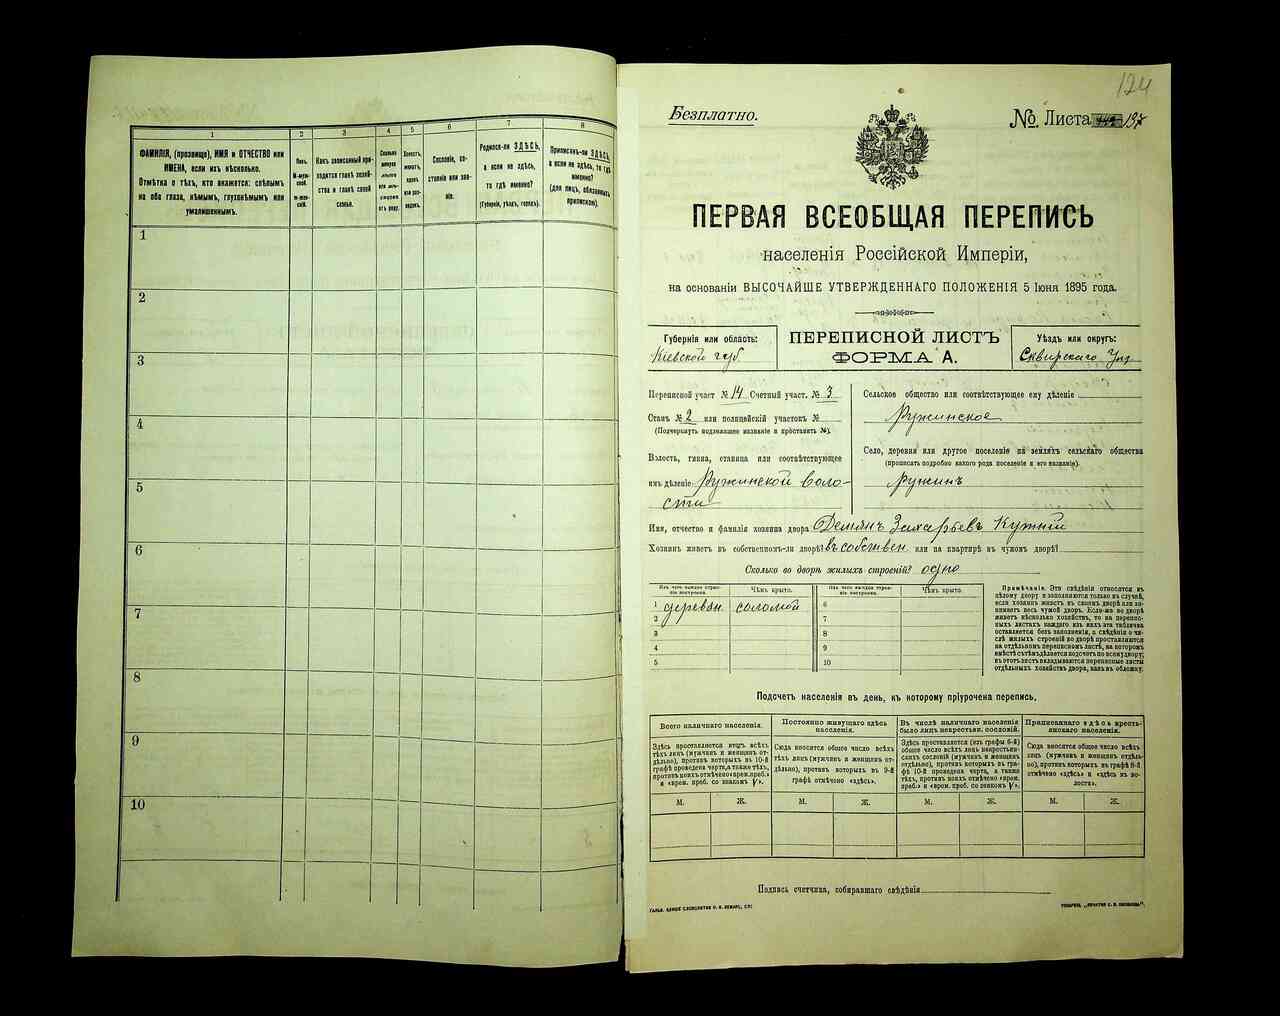 1
2
3
4
5
6
7
8
ФАМИЛІЯ, (прозвище), ИМЯ и ОТЧЕСТВО или
ИМЕНА, если ихъ нѣсколько.
Отмѣтка о тѣхъ, кто окажется: слѣпымъ
на оба глаза, нѣмымъ, глухонѣмымъ или
умалишеннымъ.
Полъ.
М-муж-
ской.
Ж-жен-
скій.
Какъ записанный при-
ходится главѣ хозяй-
ства и главѣ своей
семьи.
Сколько
минуло
лѣтъ
или мѣ-
сяцевъ
отъ роду.
Холостъ,
женатъ,
вдовъ
или раз-
веденъ.
Сословіе, со-
стояніе или зва-
ніе.
Родился-ли ЗДѢСЬ,
а если не здѣсь,
то гдѣ именно?
(Губернія, уѣздъ, городъ).
Приписанъ-ли ЗДѢСЬ,
а если не здѣсь, то гдѣ
именно?
(для лицъ, обязанныхъ
припискою).
1
2
3
4
5
6
7
8
9
10
124
Безплатно.
№ Листа 197
ПЕРВАЯ ВСЕОБЩАЯ ПЕРЕПИСЬ
населенія Россійской Имперіи,
на основаніи ВЫСОЧАЙШЕ УТВЕРЖДЕННАГО ПОЛОЖЕНІЯ 5 Іюня 1895 года.
Губернія или область:
Кіевской губ
ПЕРЕПИСНОЙ ЛИСТЪ
ФОРМА А.
Уѣздъ или округъ:
Сквирскаго Уѣз
Переписной участ № 14 Счетный участ. № 3
Станъ № 2 или полицейскій участокъ №
(Подчеркнуть подлежащее названіе и проставить №).
Волость, гмина, станица или соотвѣтствующее
имъ дѣленіе: Ружинской воло-
сти
Сельское общество или соотвѣтствующее ему дѣленіе
Ружинское
Село, деревня или другое поселеніе на земляхъ сельскаго общества
(прописать подробно какого рода поселеніе и его названіе).
Ружинъ
Имя, отчество и фамилія хозяина двора Демянъ Захарьевъ Кужній
Хозяинъ живетъ въ собственномъ-ли дворѣ? въ собствен. или на квартирѣ въ чужомъ дворѣ?
Сколько во дворѣ жилыхъ строеній? одно
Изъ чего каждое строе-
ніе построено.
Чѣмъ крыто.
Изъ чего каждое строе-
ніе построено.
Чѣмъ крыто.
1 деревян. соломой
2
3
4
5
6
7
8
9
10
Примѣчаніе. Эти свѣдѣнія относятся къ
цѣлому двору и заполняются только въ случаѣ,
если хозяинъ живетъ въ своемъ дворѣ или за-
нимаетъ весь чужой дворъ. Если-же во дворѣ
живетъ нѣсколько хозяйствъ, то на перепис-
ныхъ листахъ каждаго изъ нихъ эта табличка
оставляется безъ заполненія, а свѣдѣнія о чи-
слѣ жилыхъ строеній во дворѣ проставляются
на отдѣльномъ переписномъ листѣ, на которомъ
вмѣстѣ съ тѣмъ дѣлается подсчетъ по всему двору;
въ этотъ листъ вкладываются переписные листы
отдѣльныхъ хозяйствъ двора, какъ въ обложку.
Подсчетъ населенія въ день, къ которому пріурочена перепись.
Всего наличнаго населенія.
Здѣсь проставляется итогъ всѣхъ
тѣхъ лицъ (мужчинъ и женщинъ от-
дѣльно), противъ которыхъ въ 10-й
графѣ проведена черта, а также тѣхъ,
противъ коихъ отмѣчено «врем. преб.»
и «врем. преб. со знакомъ V».
Постоянно живущаго здѣсь
населенія.
Сюда вносится общее число всѣхъ
тѣхъ лицъ (мужчинъ и женщинъ от-
дѣльно), противъ которыхъ въ 9-й
графѣ отмѣчено «здѣсь».
Въ числѣ наличнаго населенія
было лицъ некрестьян. сословій.
Здѣсь проставляется (изъ графы 6-й)
общее число всѣхъ лицъ некрестьян-
скихъ сословій (мужчинъ и женщинъ
отдѣльно), противъ которыхъ въ гра-
фѣ 10-й проведена черта, а также
тѣхъ, противъ коихъ отмѣчено «врем.
преб.» и «врем. преб. со знакомъ V».
Приписаннаго здѣсь кресть-
янскаго населенія.
Сюда вносится общее число всѣхъ
лицъ (мужчинъ и женщинъ отдѣль-
но), противъ которыхъ въ графѣ 8-й
отмѣчено «здѣсь» и «здѣсь въ во-
лости».
М. Ж. М. Ж. М. Ж. М. Ж.
Подпись счетчика, собиравшаго свѣдѣнія